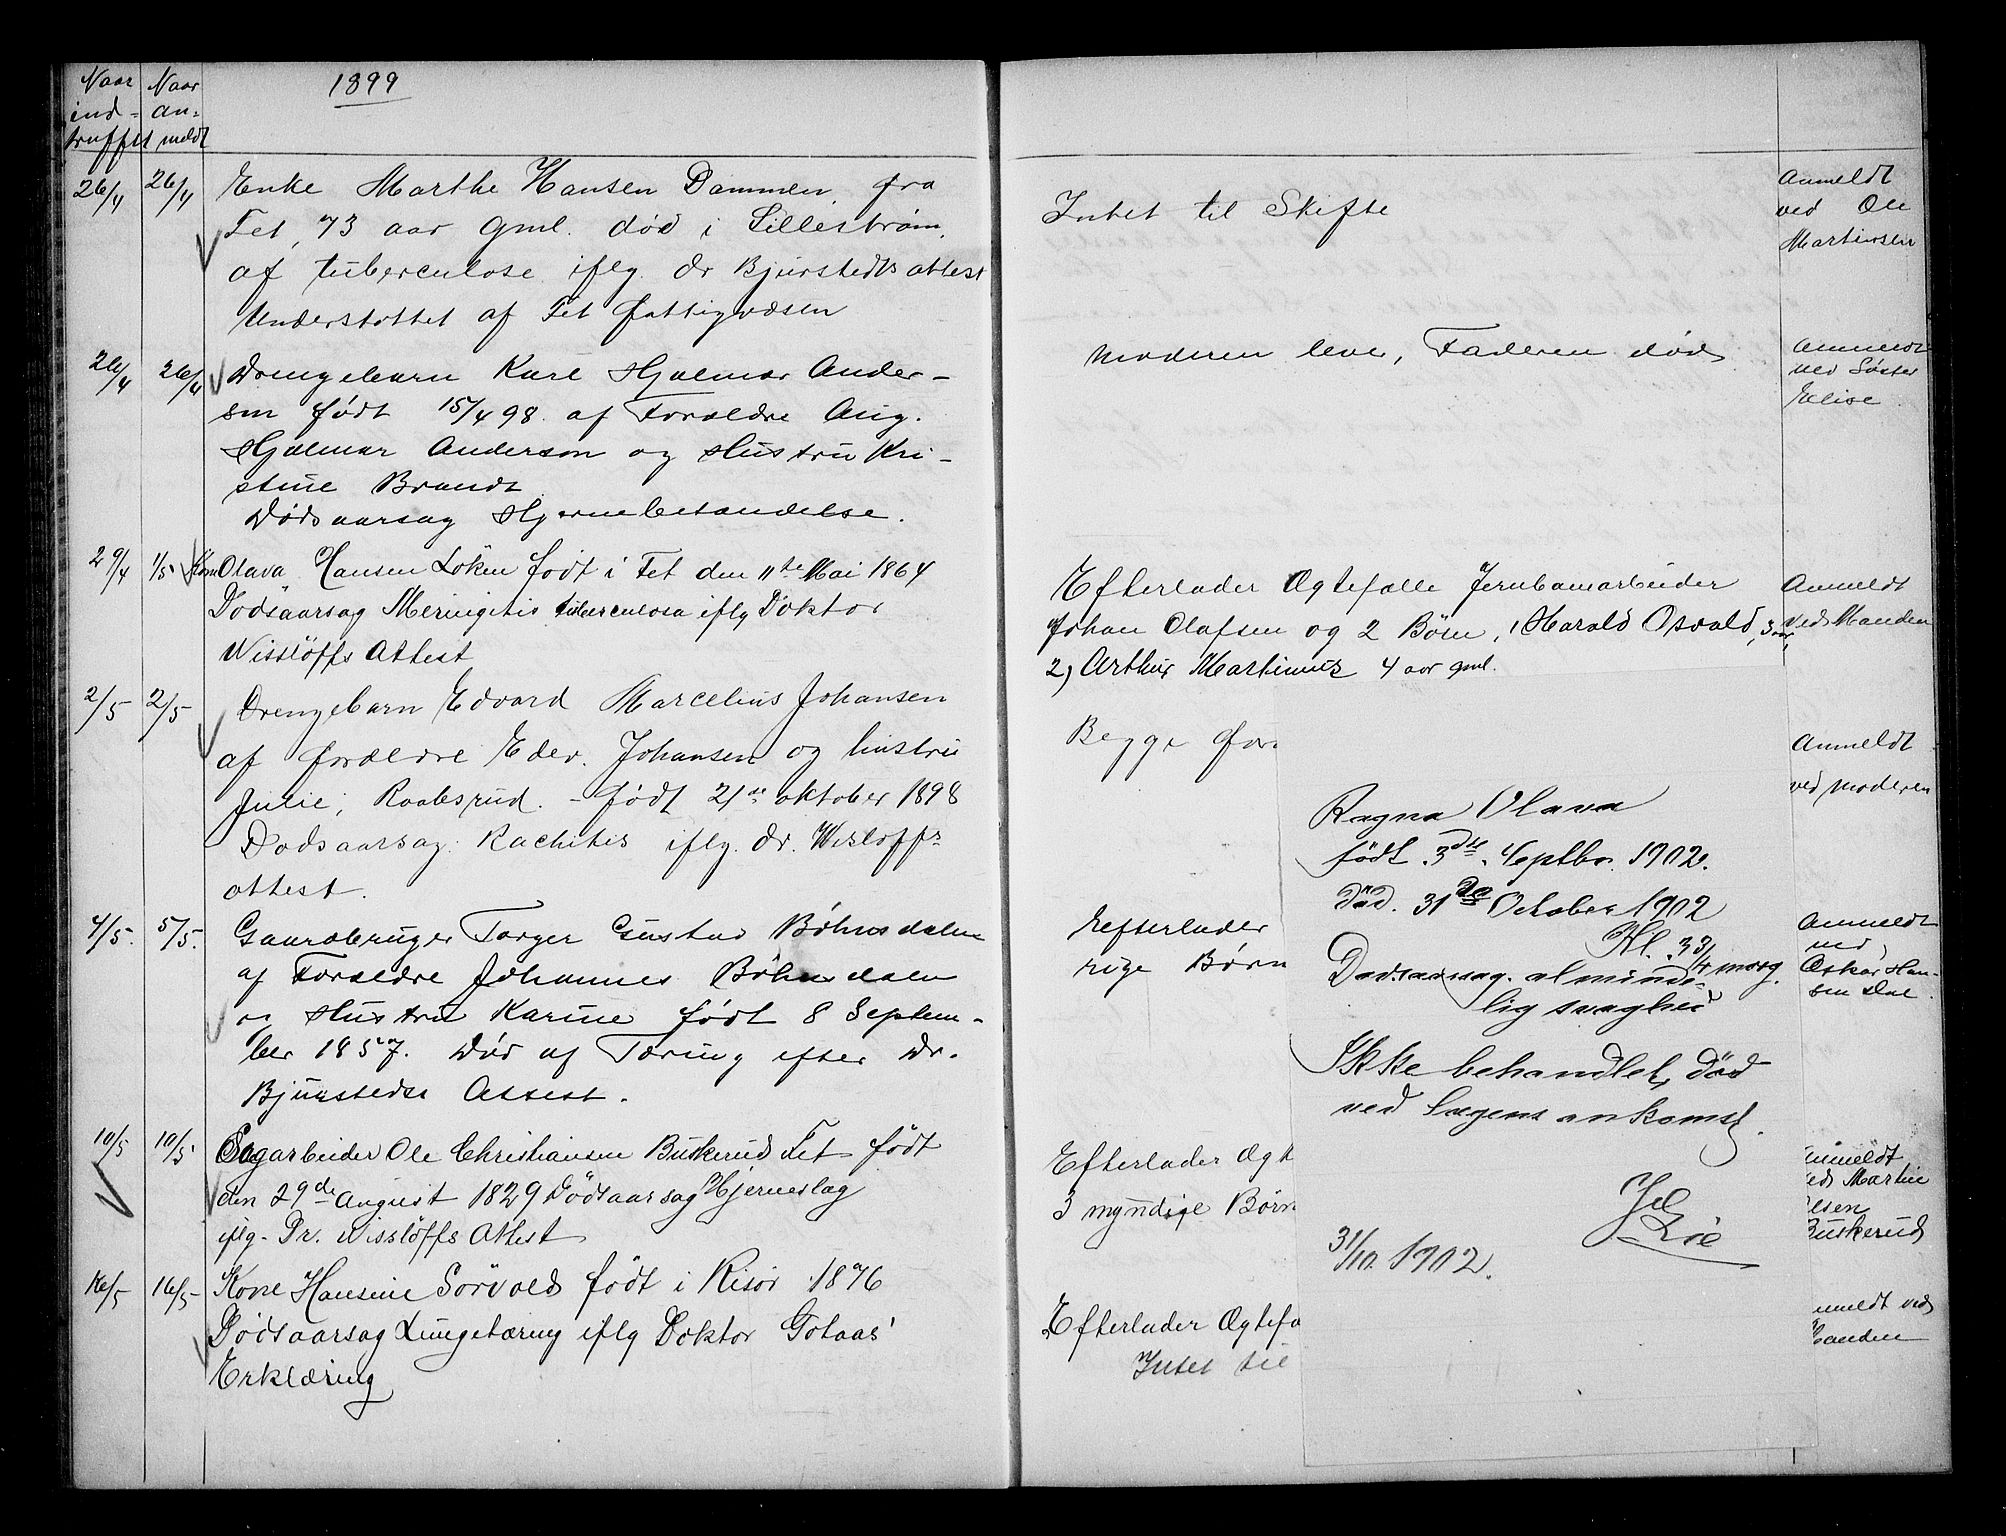 1899
Naar Naar
ind- an-
truffet meldt
26/4 26/4 Enke Marthe Hansen Dammen, fra
Fet, 73 aar gml. død i Lillestrøm,
af tuberculose iflg. dr Bjurstedts attest
Understøttet af Fet fattigvæsen
Intet til Skifte
Anmeldt
ved Ole
Martinsen
26/4 26/4 Drengebarn Karl Hjalmar Ander-
sen født 15/4 98. af Forældre Aug.
Hjalmar Anderson og Hustru Kri-
stine Brandt
Dødsaarsag Hjernebetændelse.
Moderen lever, Faderen død
Anmeldt
ved Søster
Elise
29/4 1/5 Kone Olava Hansen Løken født i Fet den 11te Mai 1864
Dødsaarsag Meningitis tuberculosa iflg Doktor
Wisslöffs Attest
Efterlader Ægtefælle Jernbanearbeider
Johan Olafsen og 2 Börn, 1 Harald Osvald, 3 aar,
2) Arthur Martinius 4 aar gml.
Anmeldt
ved Manden
2/5 2/5 Drengebarn Edvard Marcelius Johansen
af forældre Edv. Johansen og hustru
Julie, Raabsrud. - født 21de oktober 1898
Dødsaarsag: Rachitis iflg. dr. Wisløffs
attest.
Begge for
Anmeldt
ved moderen
4/5. 5/5. Gaardbruger Torger Gustav Böhnsdalen
af Forældre Johannes Böhnsdalen
og Hustru Karine født 8 Septem-
ber 1857. Død af Tæring efter Dr.
Bjursteds Attest.
Efterlader
rige Børn
Anmeldt
ved
Oskar Han-
sen Dal
10/5 10/5 Sagarbeider Ole Christiansen Buskerud Fet født
den 29de August 1829 Dödsaarsag Hjerneslag
iflg. Dr. Wisslöffs Attest
Efterlader Ægt
3 myndige Börn
nmeldt
ed Martin
lsen
Buskerud
16/5 16/5 Kone Hansine Sörvald født i Risör 1876
Dödsaarsag Lungetæring iflg Doktor Gotaas'
Erklæring
Efterlader Ægtefæ
Intet til
nmeldt ved
Manden
Ragna Olava
født. 3die. Septbr. 1902.
död. 31te October 1902
Kl. 3 3/4 morg.
Dødsaarsag. alminde-
lig svaghed
Ikke behandlet, död
ved Lægens ankomst.
31/10. 1902.